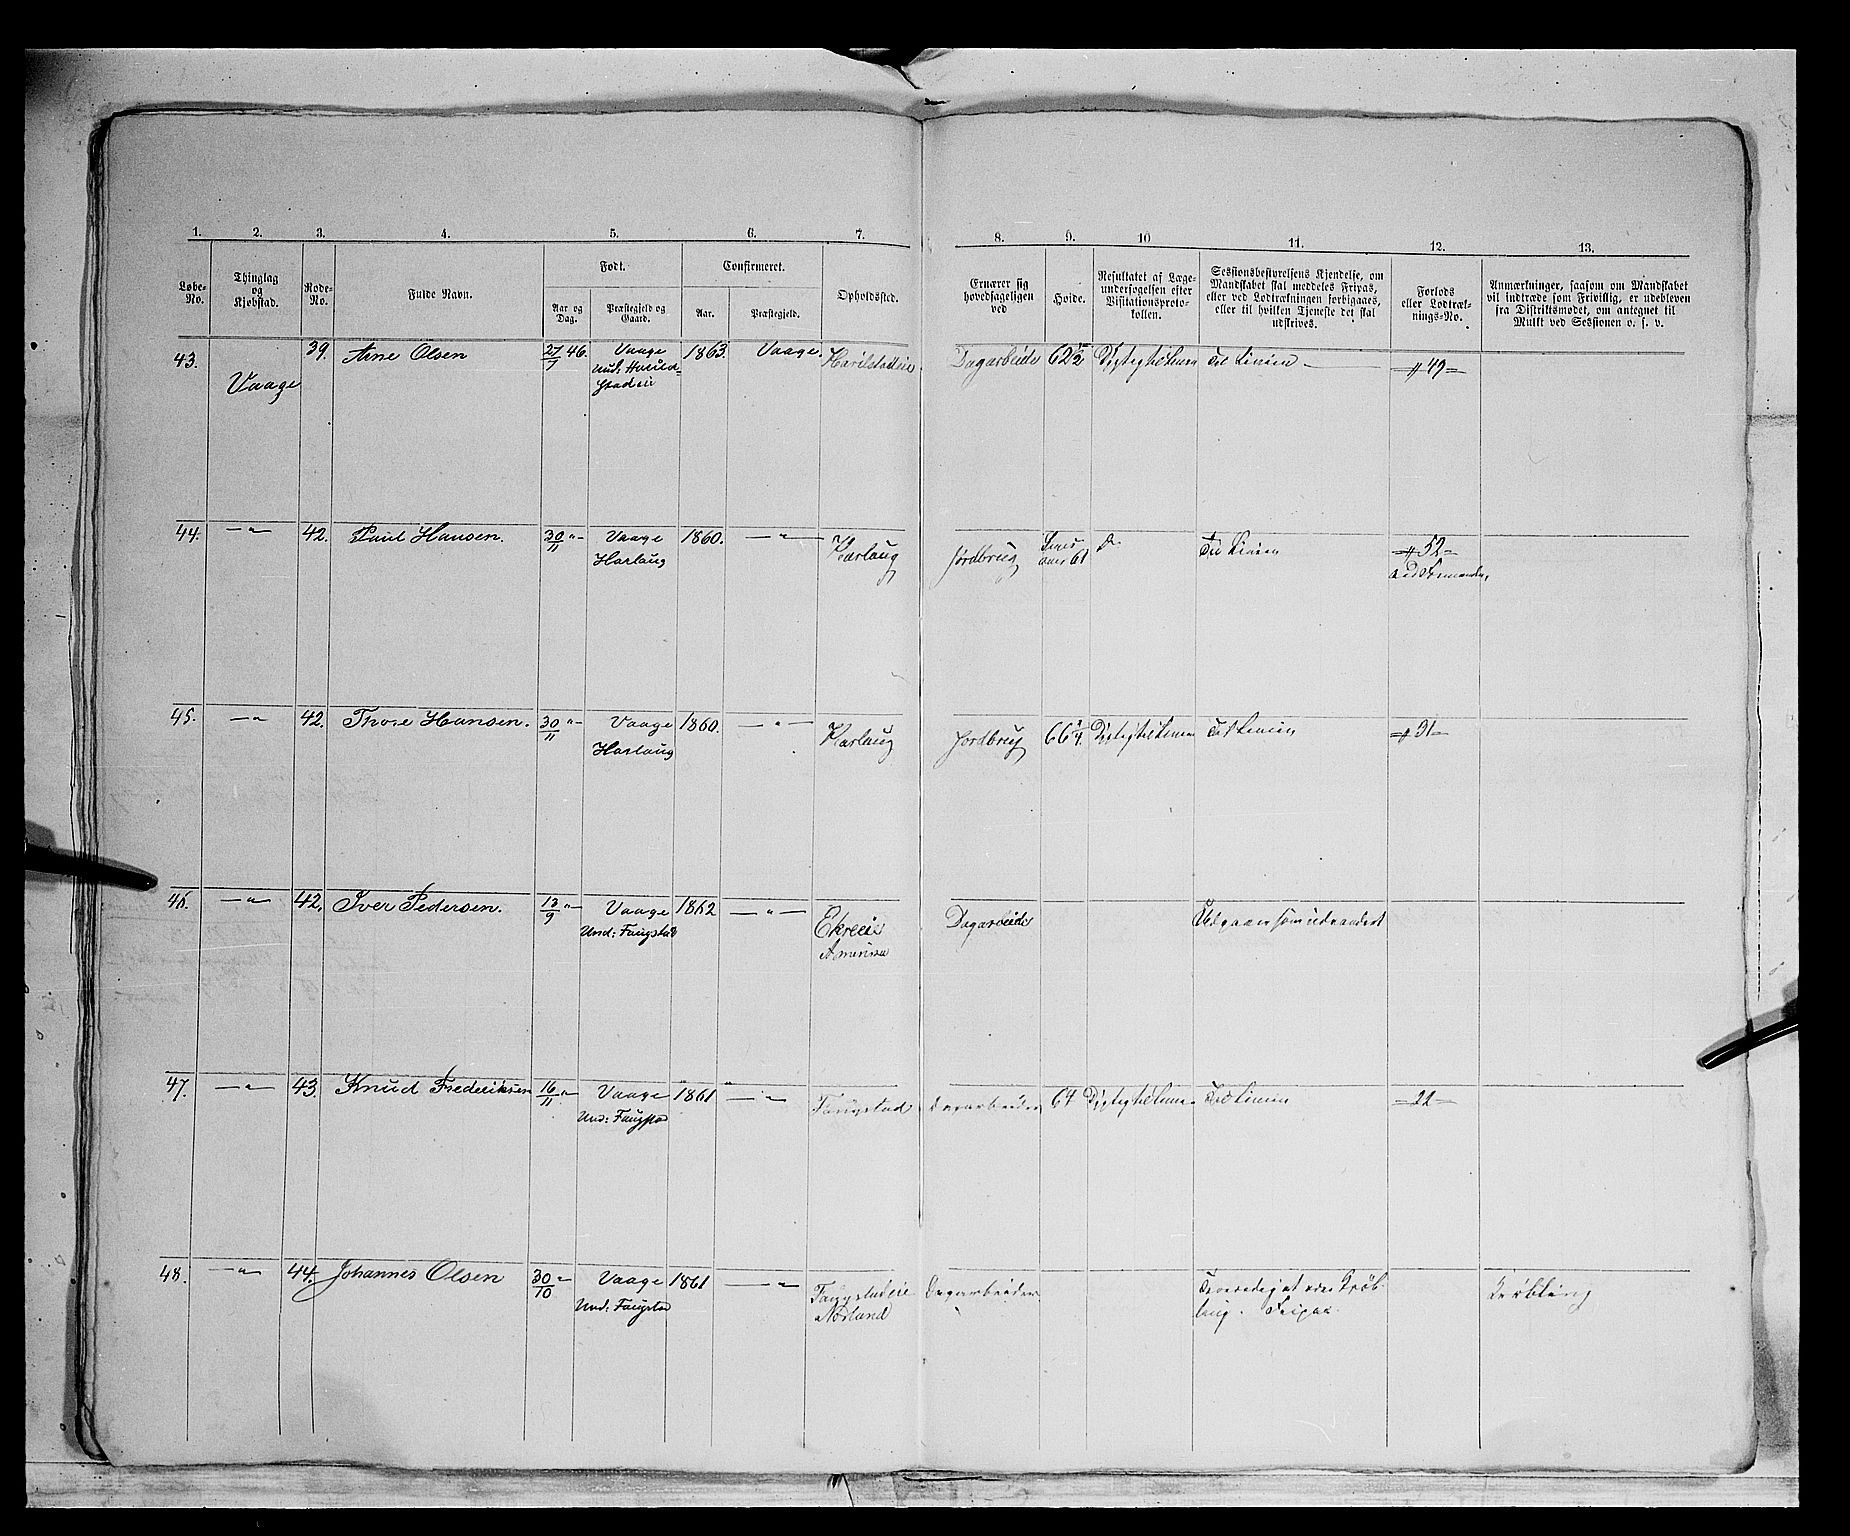 1. 2. 3. 4. 5. 6. 7. 8. 9. 10 11. 12. 13.
Løbe-No.
Thinglag og Kjøbstad.
Rode-No.
Fulde Navn.
Født.
Aar og Dag.
Præstegjeld og Gaard.
Confirmeret.
Aar.
Præstegjeld.
Opholdssted.
Ernærer sig hovedsageligen ved
Høide.
Resultatet af Læge-
undersøgelsen efter
Visitationsproto-
kollen.
Sessionsbestyrelsens Kjendelse, om
Mandskabet skal meddeles Fripas,
eller ved Lodtrækningen forbigaaes,
eller til hvilken Tjeneste det skal
udskrives.
Forlods
eller Lodtræk-
nings-No.
Anmærkninger, saasom om Mandskabet
vil indtræde som Frivillig, er udebleven
fra Distriktsmødet, om antegnet til
Mulkt ved Sessionen o. s. v.
43. Vaage 39. Arne Olsen 27/7 46. Vaage 1863. Vaage. Dagarbeide 62 1/2 Dygtig til Linien Til Linien — 49
44. —"— 42. Paul Hansen. 30/11 "- Vaage 1860. —"— Harlaug Jordbrug 61 D° Til Linien 52
Harlaug
45. —"— 42. Thore Hansen. 30/11 "- Vaage 1860. —"— Harlaug Jordbrug 66 1/4 Dygtig til Linien Til Linien 31
Harlaug
46. —"— 42. Iver Pedersen. 13/9 "- Vaage 1862 —"— Ekreeie Dagarbeide Udgaaer som udvandret
Und: Faugstad Amerika
47. —"— 43. Knud Frederiksen 16/11 "- Vaage 1861 —"— Faugstad Dagarbeider 64 Dygtig til Linien Til Linien 22
Und: Faugstad
48. —"— 44. Johannes Olsen 30/10 "- Vaage 1861 —"— Faugstadeie Dagarbeider Krøbling
Und: Faugstad Norland Fripas